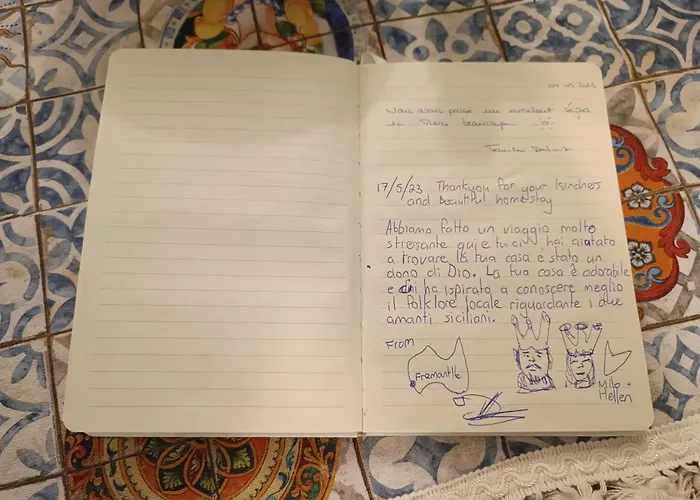 Nous avons passé un excellent séjour
17/5/23 Thankyou for your kindness
and Beautiful homestay
Abbiamo fatto un viaggio molto
stressante qui e tu ci hai aiutato
a trovare la tua casa è stato un
dono di Dio. La tua casa è adorabile
e ci ha ispirato a conoscere meglio
il folklore locale riguardante i due
amanti siciliani.
From
Fremantle
Milo +
Hellen